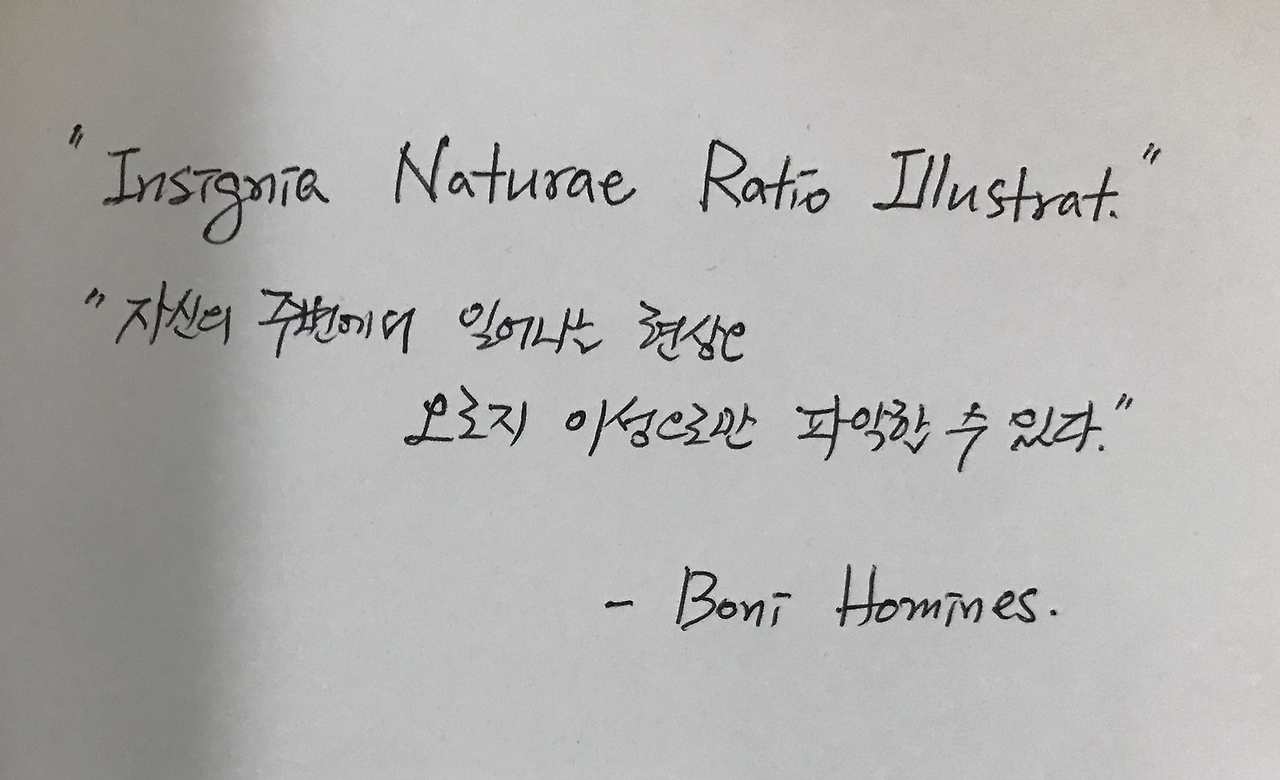 "Insignia Naturae Ratio Illustrat."
"자신의 주변에서 일어나는 현상은
오로지 이성으로만 파악할 수 있다."
- Boni Homines.